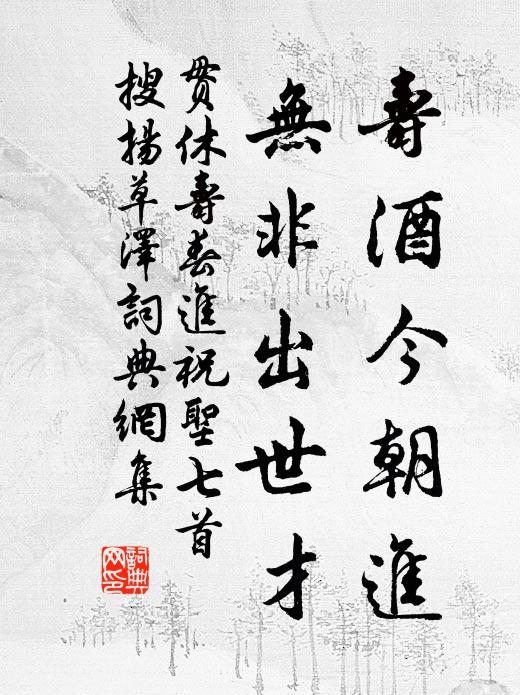 壽酒今朝進
無非出世才
貫休壽春進祝聖七首
搜揚草澤詞典網集
詞典网印